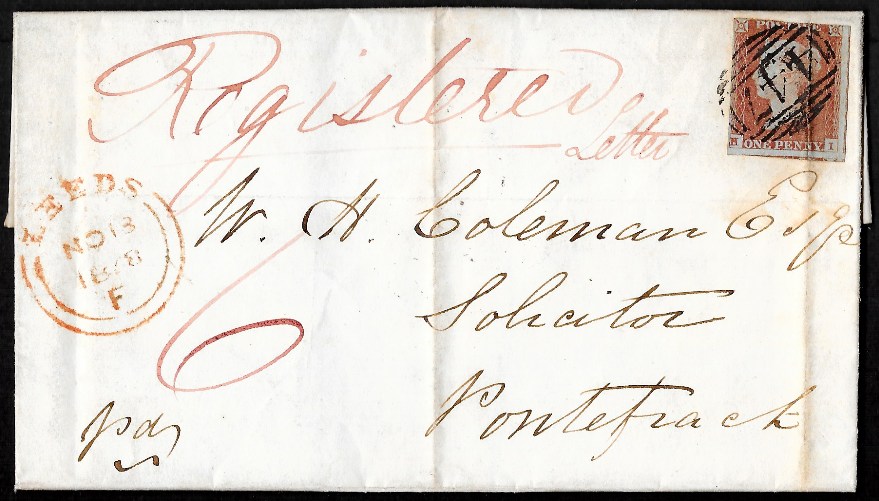 POSTAGE
H ONE PENNY I
Registered
Letter
LEEDS
NO 13
F
W. H. Coleman Esqr
Solicitor
Pontefrack
6
pd